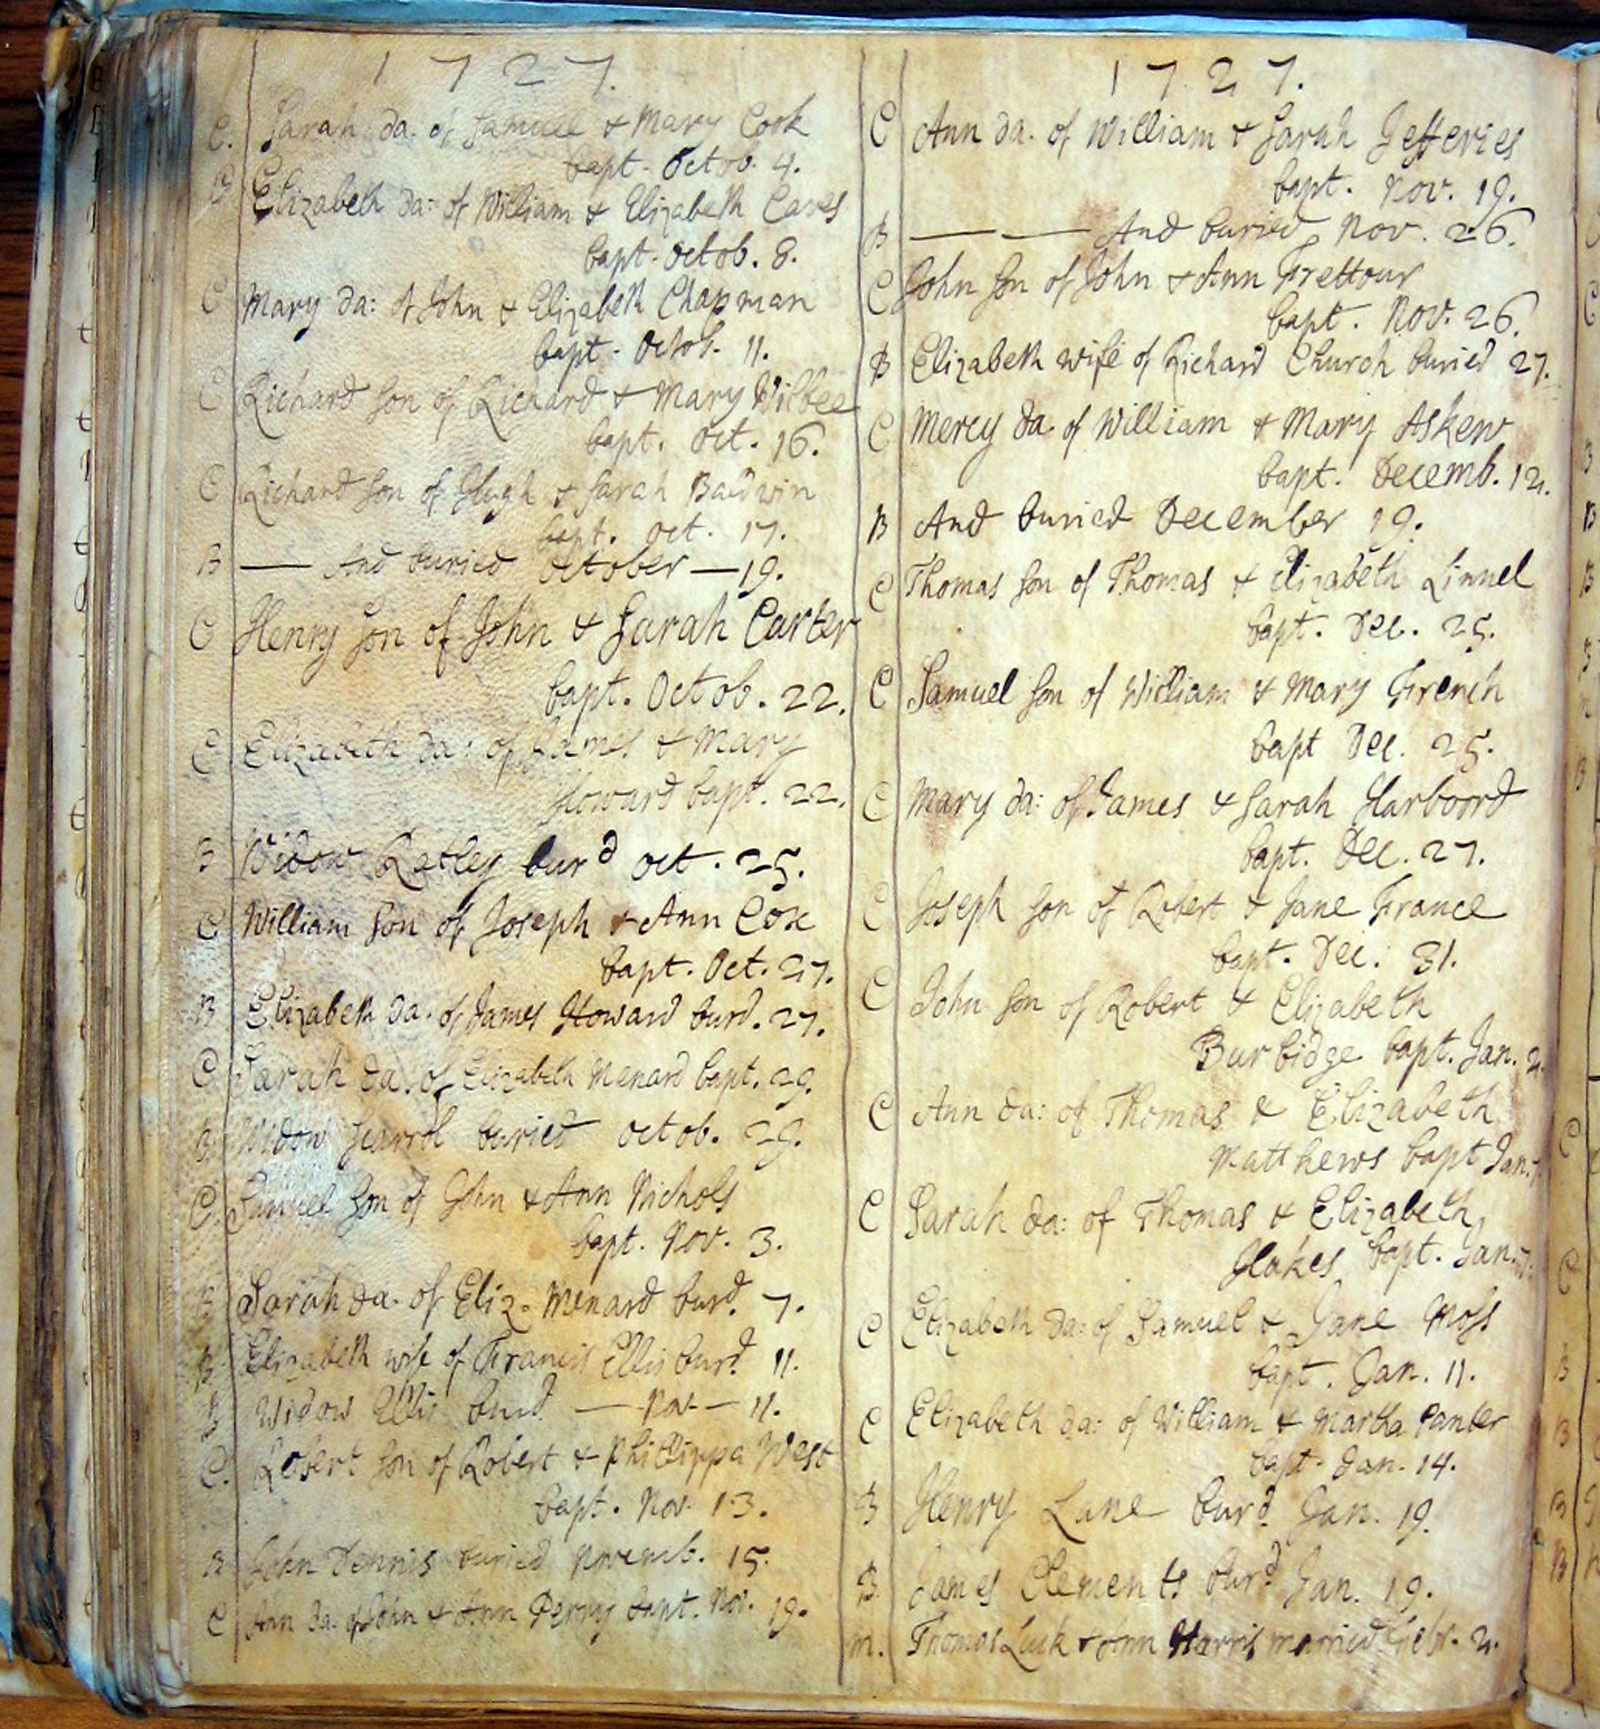 1727.
C. Sarah da. of Samuel & Mary Cook
bapt. Octob. 4.
B Elizabeth da: of William & Elizabeth Caves
bapt. Octob. 8.
C Mary da: of John & Elizabeth Chapman
bapt. Octob. 11.
C Richard son of Richard & Mary Wilbee
bapt. Oct. 16.
C Richard son of Hugh & Sarah Baldwin
bapt. Oct. 17.
B — And buried October — 19.
C Henry son of John & Sarah Carter
bapt. Octob. 22.
C Elizabeth da: of James & Mary
Howard bapt. 22.
B Widow Ratley burd Oct. 25.
C William son of Joseph & Ann Cox
bapt. Oct. 27.
B Elizabeth da. of James Howard burd. 27.
C Sarah da. of Elizabeth Menard bapt. 29.
Widow buried Octob. 29.
C. Samuel son of John & Ann Nichols
bapt. Nov. 3.
B Sarah da. of Eliz. Menard burd. 7.
B Elizabeth wife of Francis Ellis burd. 11.
B Widow Ellis burd — Nov — 11.
C. Robert son of Robert & Phillippa West
bapt. Nov. 13.
B John Dennis buried Novemb. 15.
C Ann da. of John & Ann Perry bapt. Nov. 19.
1727.
C Ann da. of William & Sarah Jefferies
bapt. Nov. 19.
B — — And buried Nov. 26.
C John son of John & Ann Frettour
bapt. Nov. 26.
B Elizabeth wife of Richard Church buried 27.
C Mercy da of William & Mary Askew
bapt. Decemb. 12.
B And buried December 19.
C Thomas son of Thomas & Elizabeth Linnel
bapt. Dec. 25.
C Samuel son of William & Mary French
bapt Dec. 25.
C Mary da: of James & Sarah Harboord
bapt. Dec. 27.
C Joseph son of Robert & Jane France
bapt. Dec. 31.
C John son of Robert & Elizabeth
Burbidge bapt. Jan. 2.
C Ann da: of Thomas & Elizabeth
Matthews bapt Jan.
C Sarah da: of Thomas & Elizabeth
bapt. Jan.
C Elizabeth da: of Samuel & Jane Moss
bapt. Jan. 11.
C Elizabeth da: of William & Martha Panter
bapt. Jan. 14.
B Henry Lane burd. Jan. 19.
B James Clements burd. Jan. 19.
m. Thomas Luck & Ann Harris married Febr. 2.